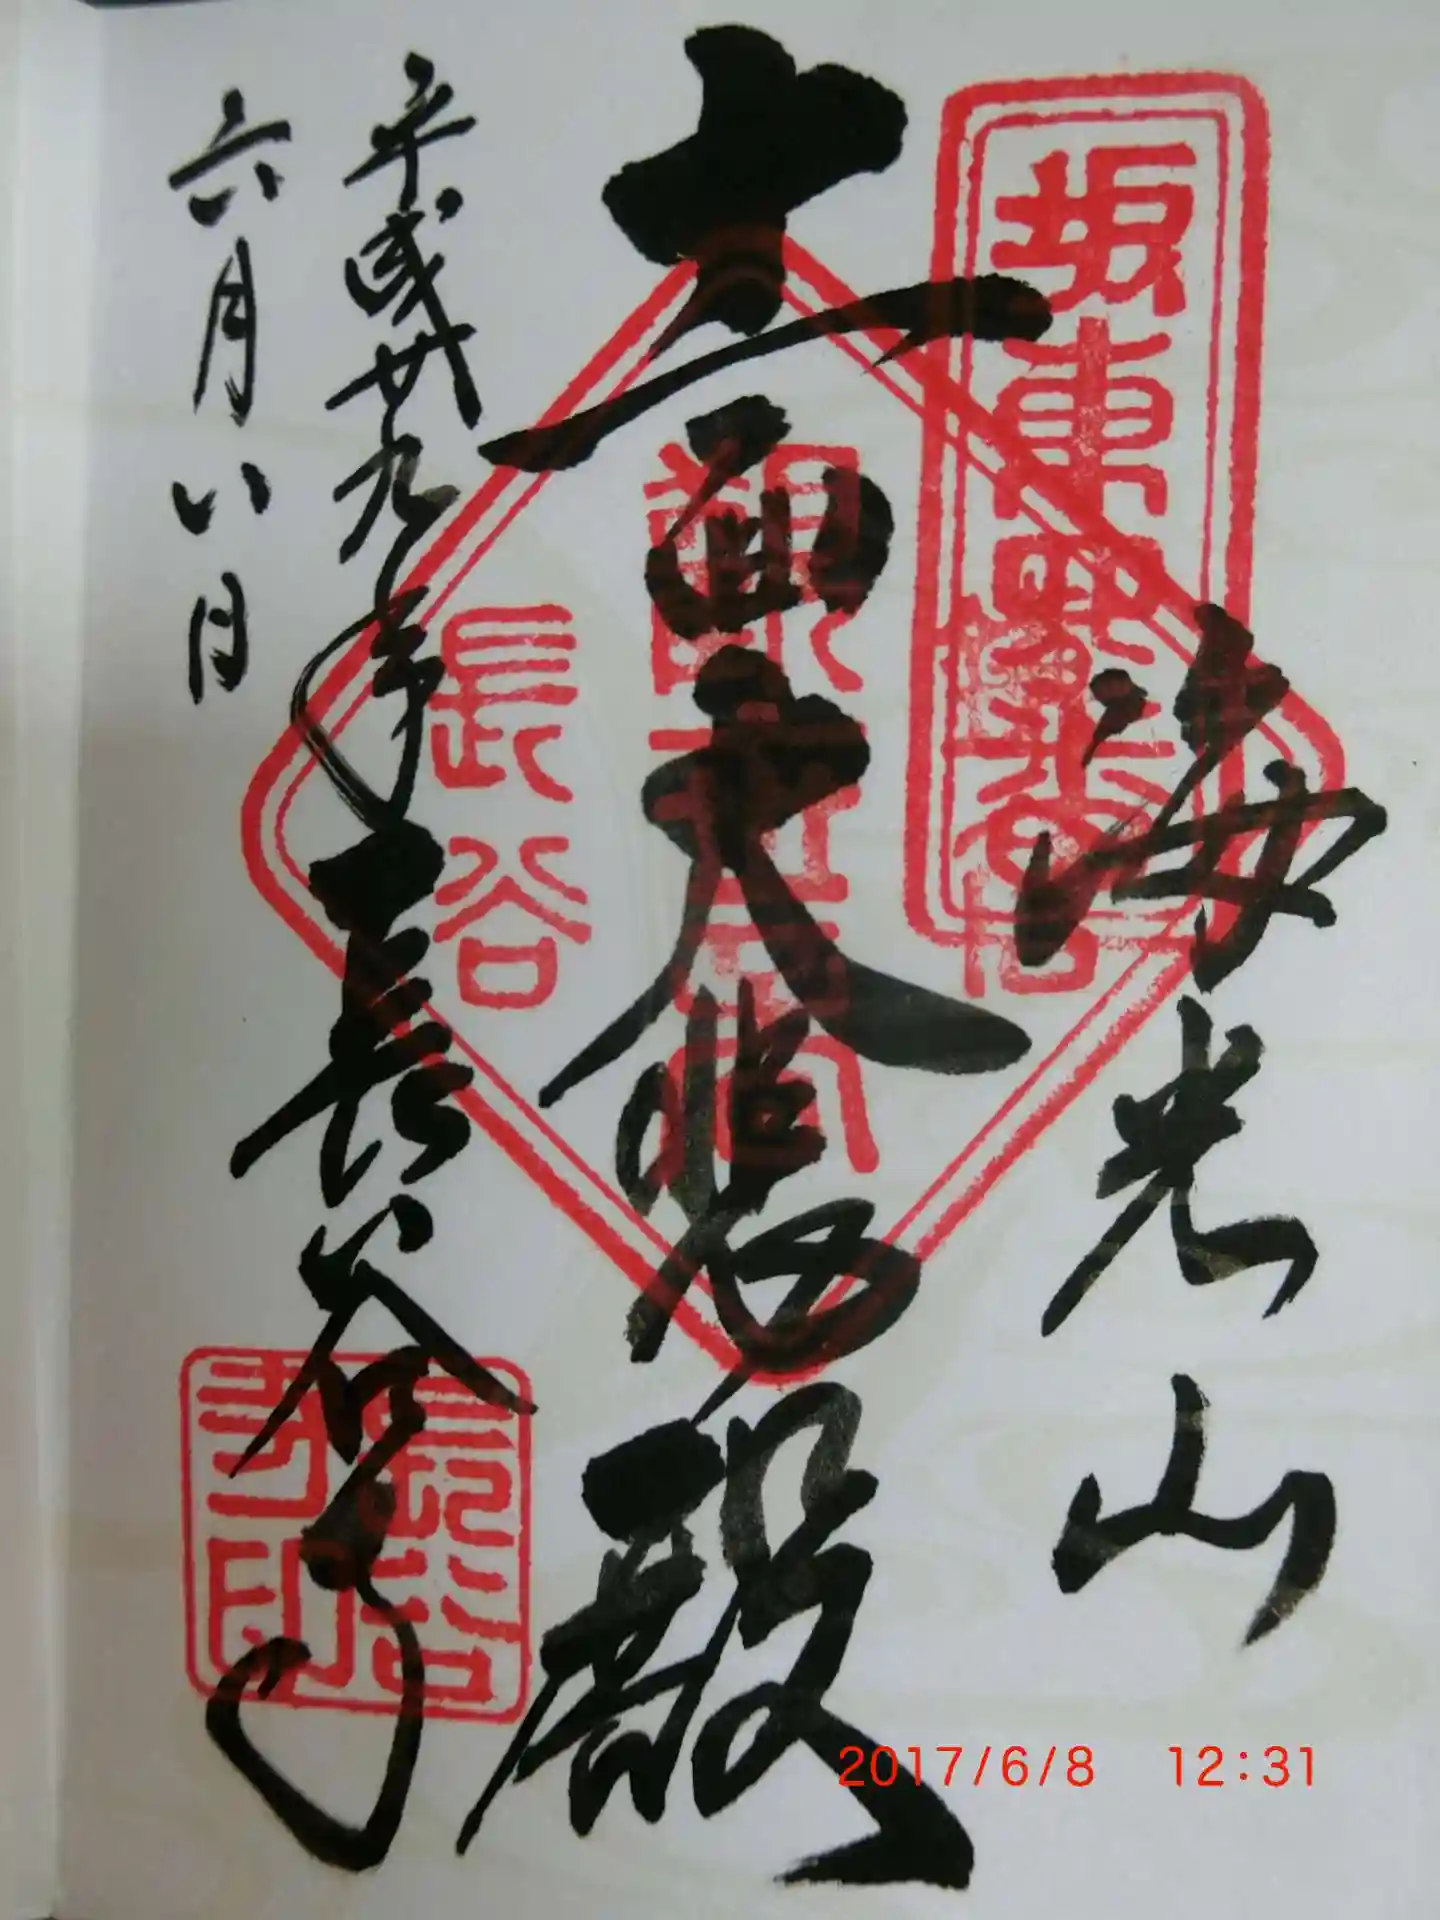 坂東第四番
海光山
十一面大悲殿
長谷
平成廿九年
六月八日
長谷寺
長谷寺印
2017/6/8 12:31